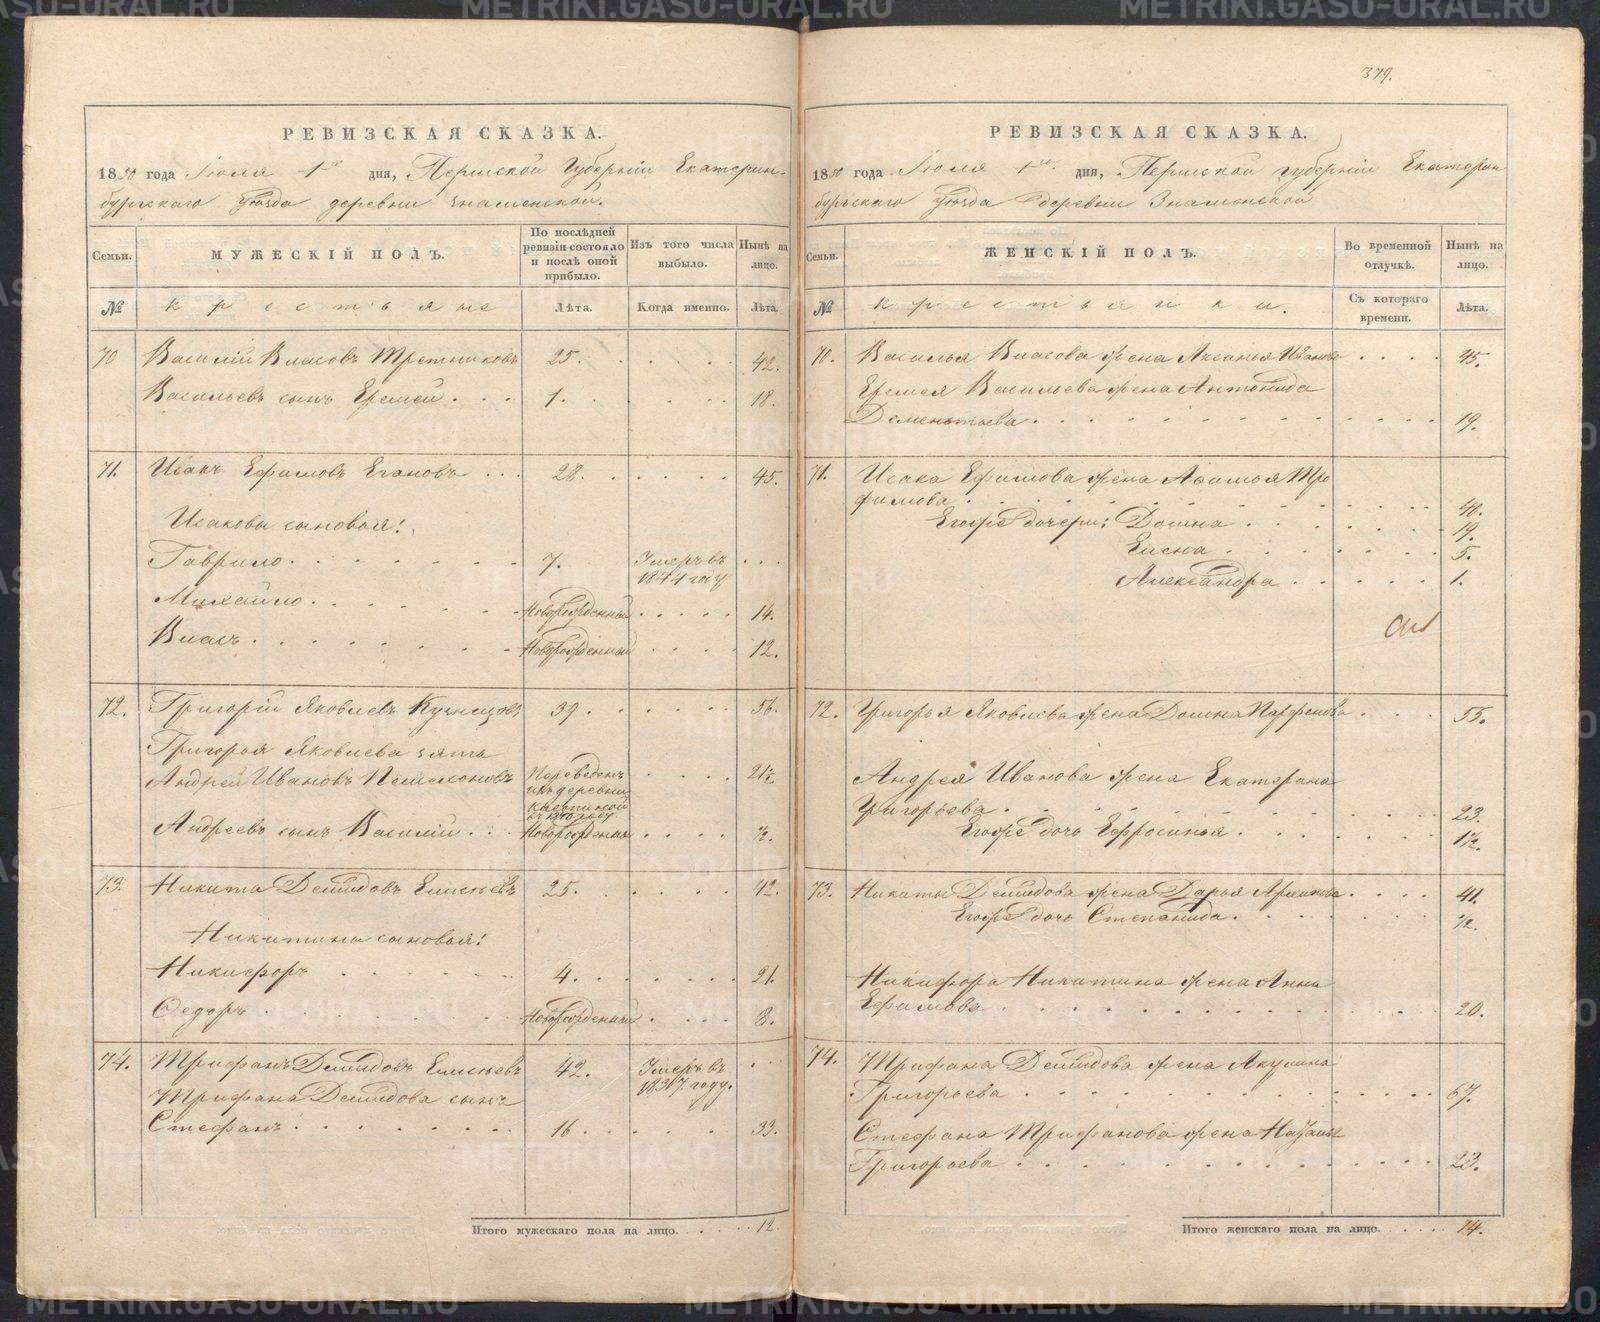 379.
РЕВИЗСКАЯ СКАЗКА.
1850 года Июля 1го дня, Пермской Губерніи Екатерин-
бургскаго Уѣзда деревни Знаменской.
Семьи.
МУЖЕСКІЙ ПОЛЪ.
По послѣдней ревизіи состояло и послѣ оной прибыло.
Изъ того числа выбыло.
Нынѣ на лицо.
№
Крестьяне
Лѣта.
Когда именно.
Лѣта.
70 Василій Власовъ Третниковъ 25. 42.
Васильевъ сынъ Еремей . . . 1. 18.
71. Исакъ Ефимовъ Егановъ . . . 28. 45.
Исаковы сыновья:
Гаврило 7. Умеръ въ
1844 году
Михайло Новорожденный 14.
Власъ Новорожденный 12.
72. Григорій Яковлевъ Кузнецовъ 39. 56.
Григорья Яковлева зять
Андрей Ивановъ Переведенъ 21½
изъ деревни
Андреевъ сынъ Василій Новорожденный ½.
73. Никита Демидовъ Елисѣевъ 25. 42.
Никитины сыновья:
Никифоръ 4. 21.
Федоръ Новорожденный 8.
74. Трифанъ Демидовъ Елисѣевъ 42. Умеръ въ
1837 году.
Трифана Демидова сынъ
Стефанъ 16. 33.
Итого мужескаго пола на лицо. 12
РЕВИЗСКАЯ СКАЗКА.
1850 года Июля 1го дня, Пермской Губерніи Екатерин
бургскаго Уѣзда деревни Знаменской
Семьи.
ЖЕНСКІЙ ПОЛЪ.
Во временной отлучкѣ.
Нынѣ на лицо.
№
Крестьянки.
Съ котораго времени.
Лѣта.
70. Василья Власова жена Аксинья Иванова 45.
Еремея Васильева жена Антонида
Дементьева 19.
71. Исака Ефимова жена Афимья Тро
фимова 40.
Егоже дочери: Домна 19.
Елена 5.
Александра 1.
72. Григорья Яковлева жена Домна Парфенова 55.
Андрея Иванова жена Екатерина
Григорьева 23.
Егоже дочь Ефросинья 1½.
73. Никиты Демидова жена Дарья 41.
Егоже дочь Степанида ½.
Никифора Никитина жена Анна
Ефимова 20.
74. Трифана Демидова жена Акулина
Григорьева 67.
Стефана Трифанова жена Наталья
Григорьева 23.
Итого женскаго пола на лицо. 14.
METRIKI.GASO-URAL.RU